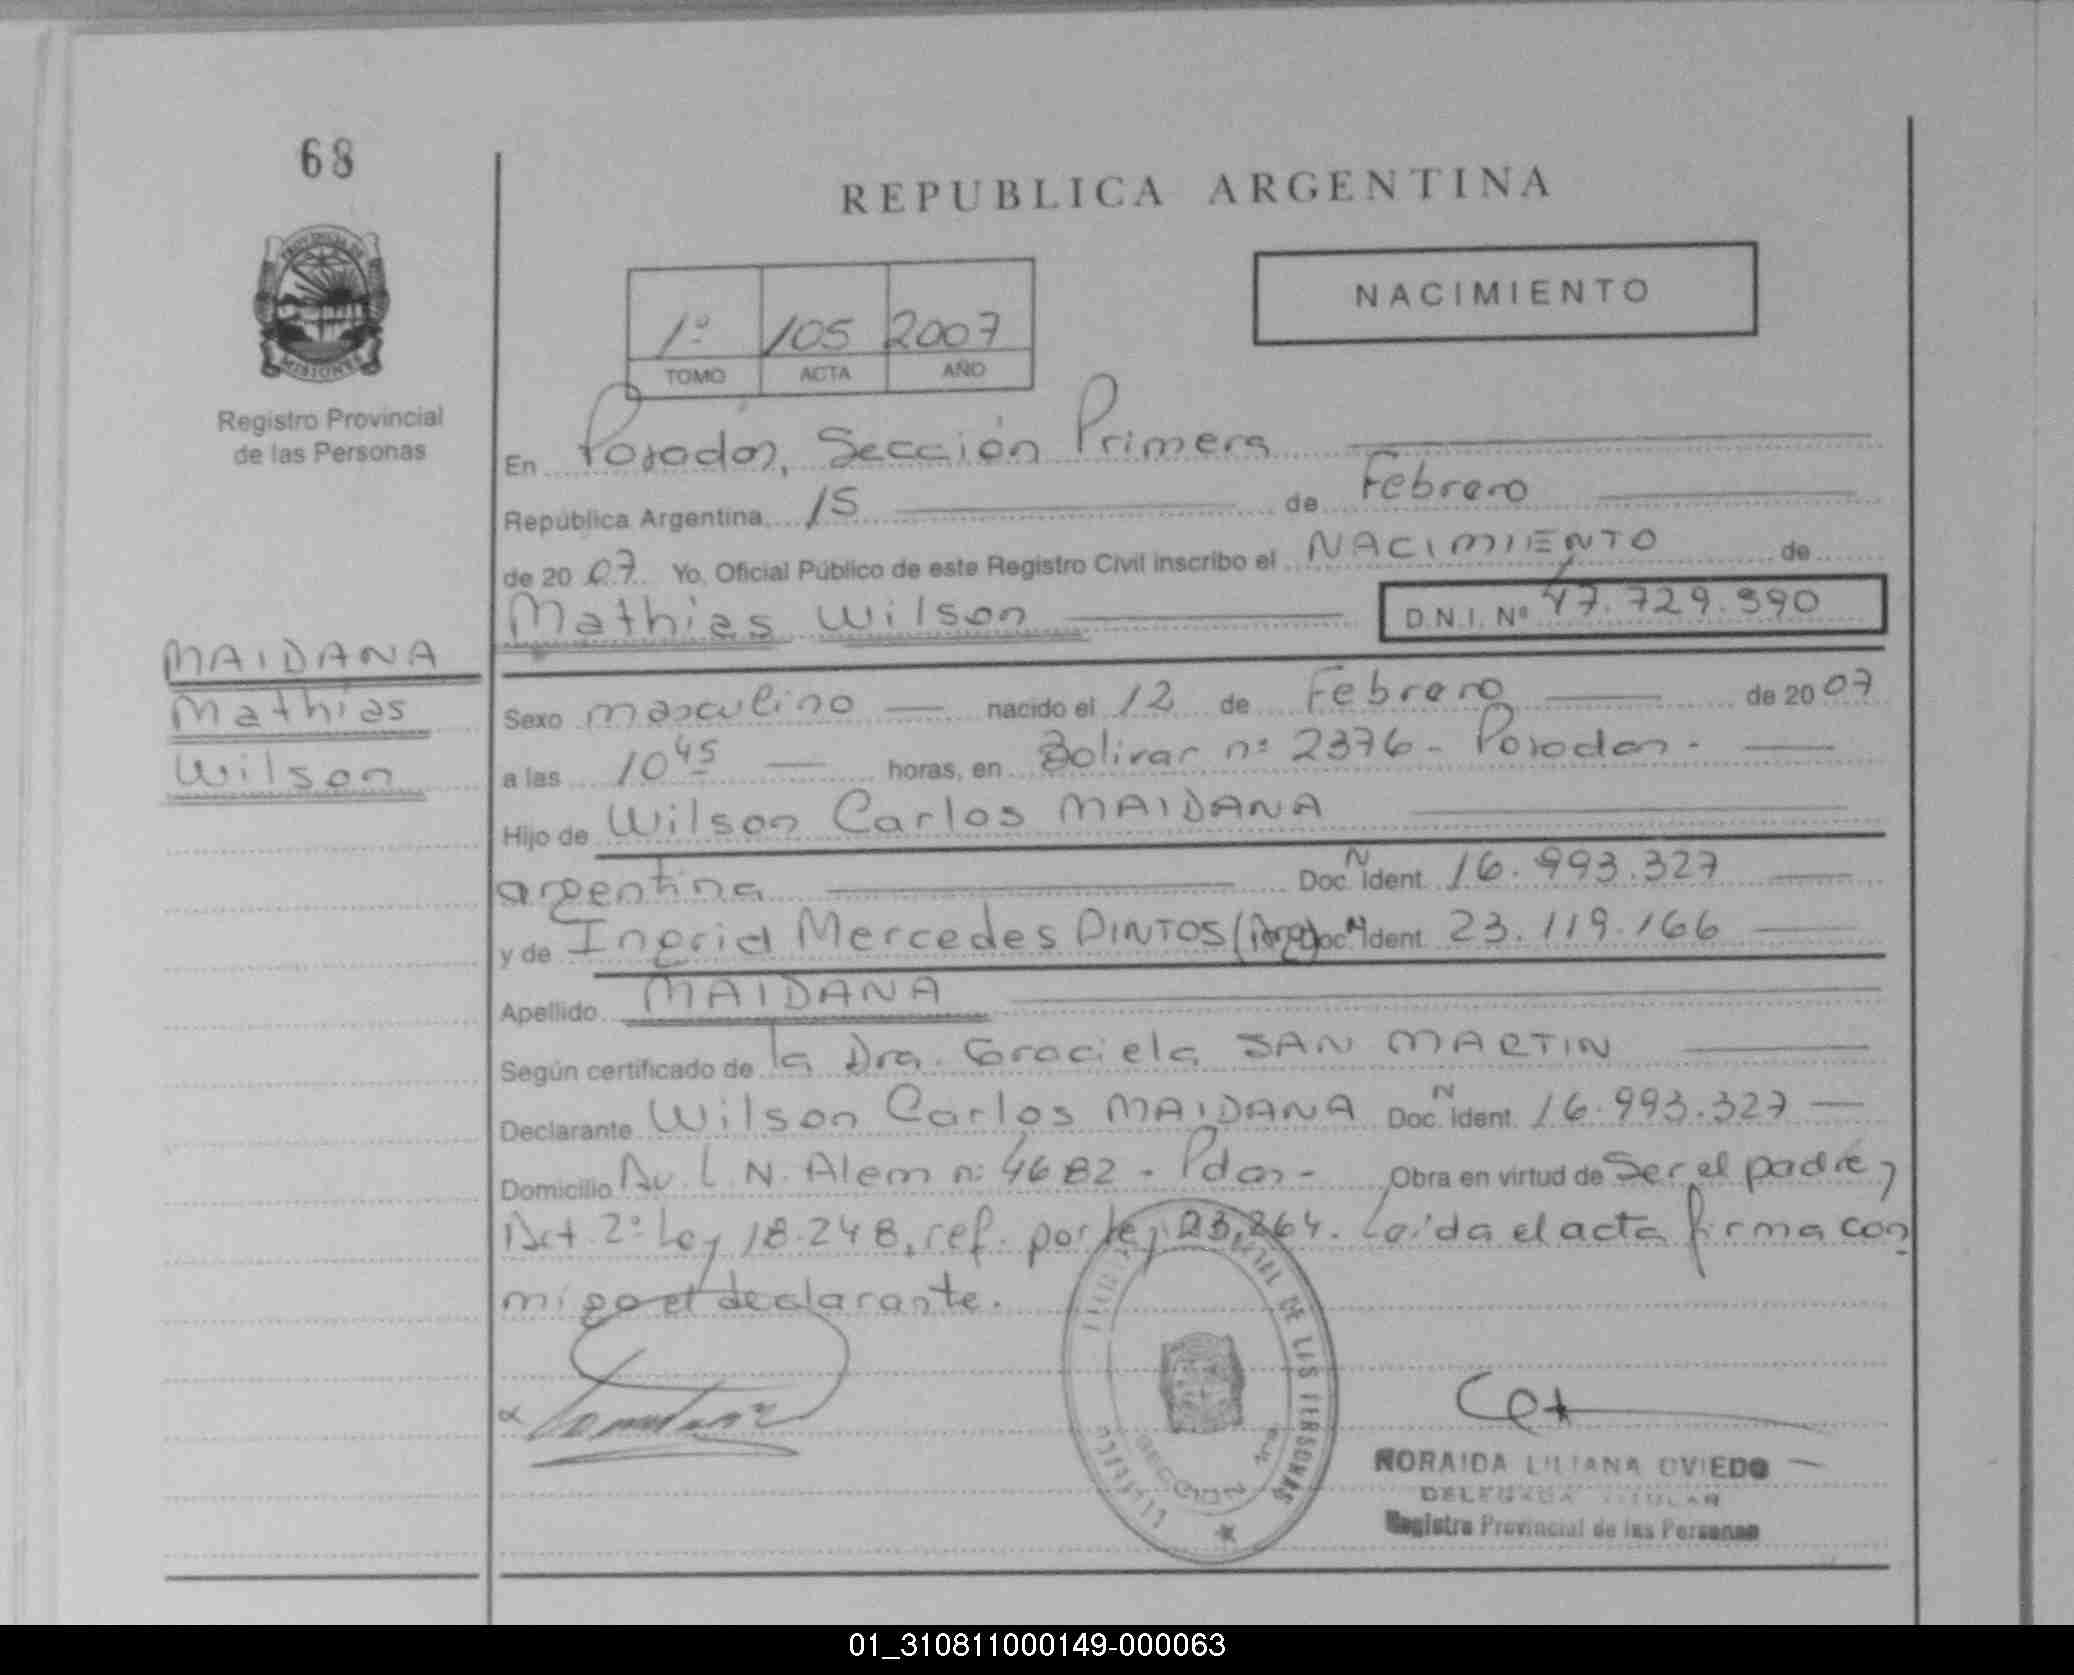 68
REPUBLICA ARGENTINA
PROVINCIA DE
MISIONES
NACIMIENTO
1º 105 2007
TOMO ACTA AÑO
Registro Provincial
de las Personas
En Posadas, Sección Primera
República Argentina 15 de Febrero
de 2007 Yo, Oficial Público de este Registro Civil inscribo el NACIMIENTO de
Mathias Wilson D.N.I. Nº 47.729.390
MAIDANA
Mathias
Wilson
Sexo masculino nacido el 12 de Febrero de 2007
a las 10 45 horas, en Bolivar nº 2376 - Posadas -
Hijo de Wilson Carlos MAIDANA
argentina Doc. N Ident. 16.993.327
y de Ingrid Mercedes PINTOS (Arg) Doc. N Ident. 23.119.166
Apellido MAIDANA
Según certificado de la Dra. Graciela SAN MARTIN
Declarante Wilson Carlos MAIDANA Doc. N Ident. 16.993.327
Domicilio Av. L. N. Alem nº 4682 - Pdas - Obra en virtud de Ser el padre y
Art. 2º Ley 18.248, ref. por ley 23.264. Leída el acta firma con
migo el declarante.
DE LAS PERSONAS
SECCION 1ra
NORAIDA LILIANA OVIEDO
DELEGADA TITULAR
Registro Provincial de las Personas
01_310811000149-000063